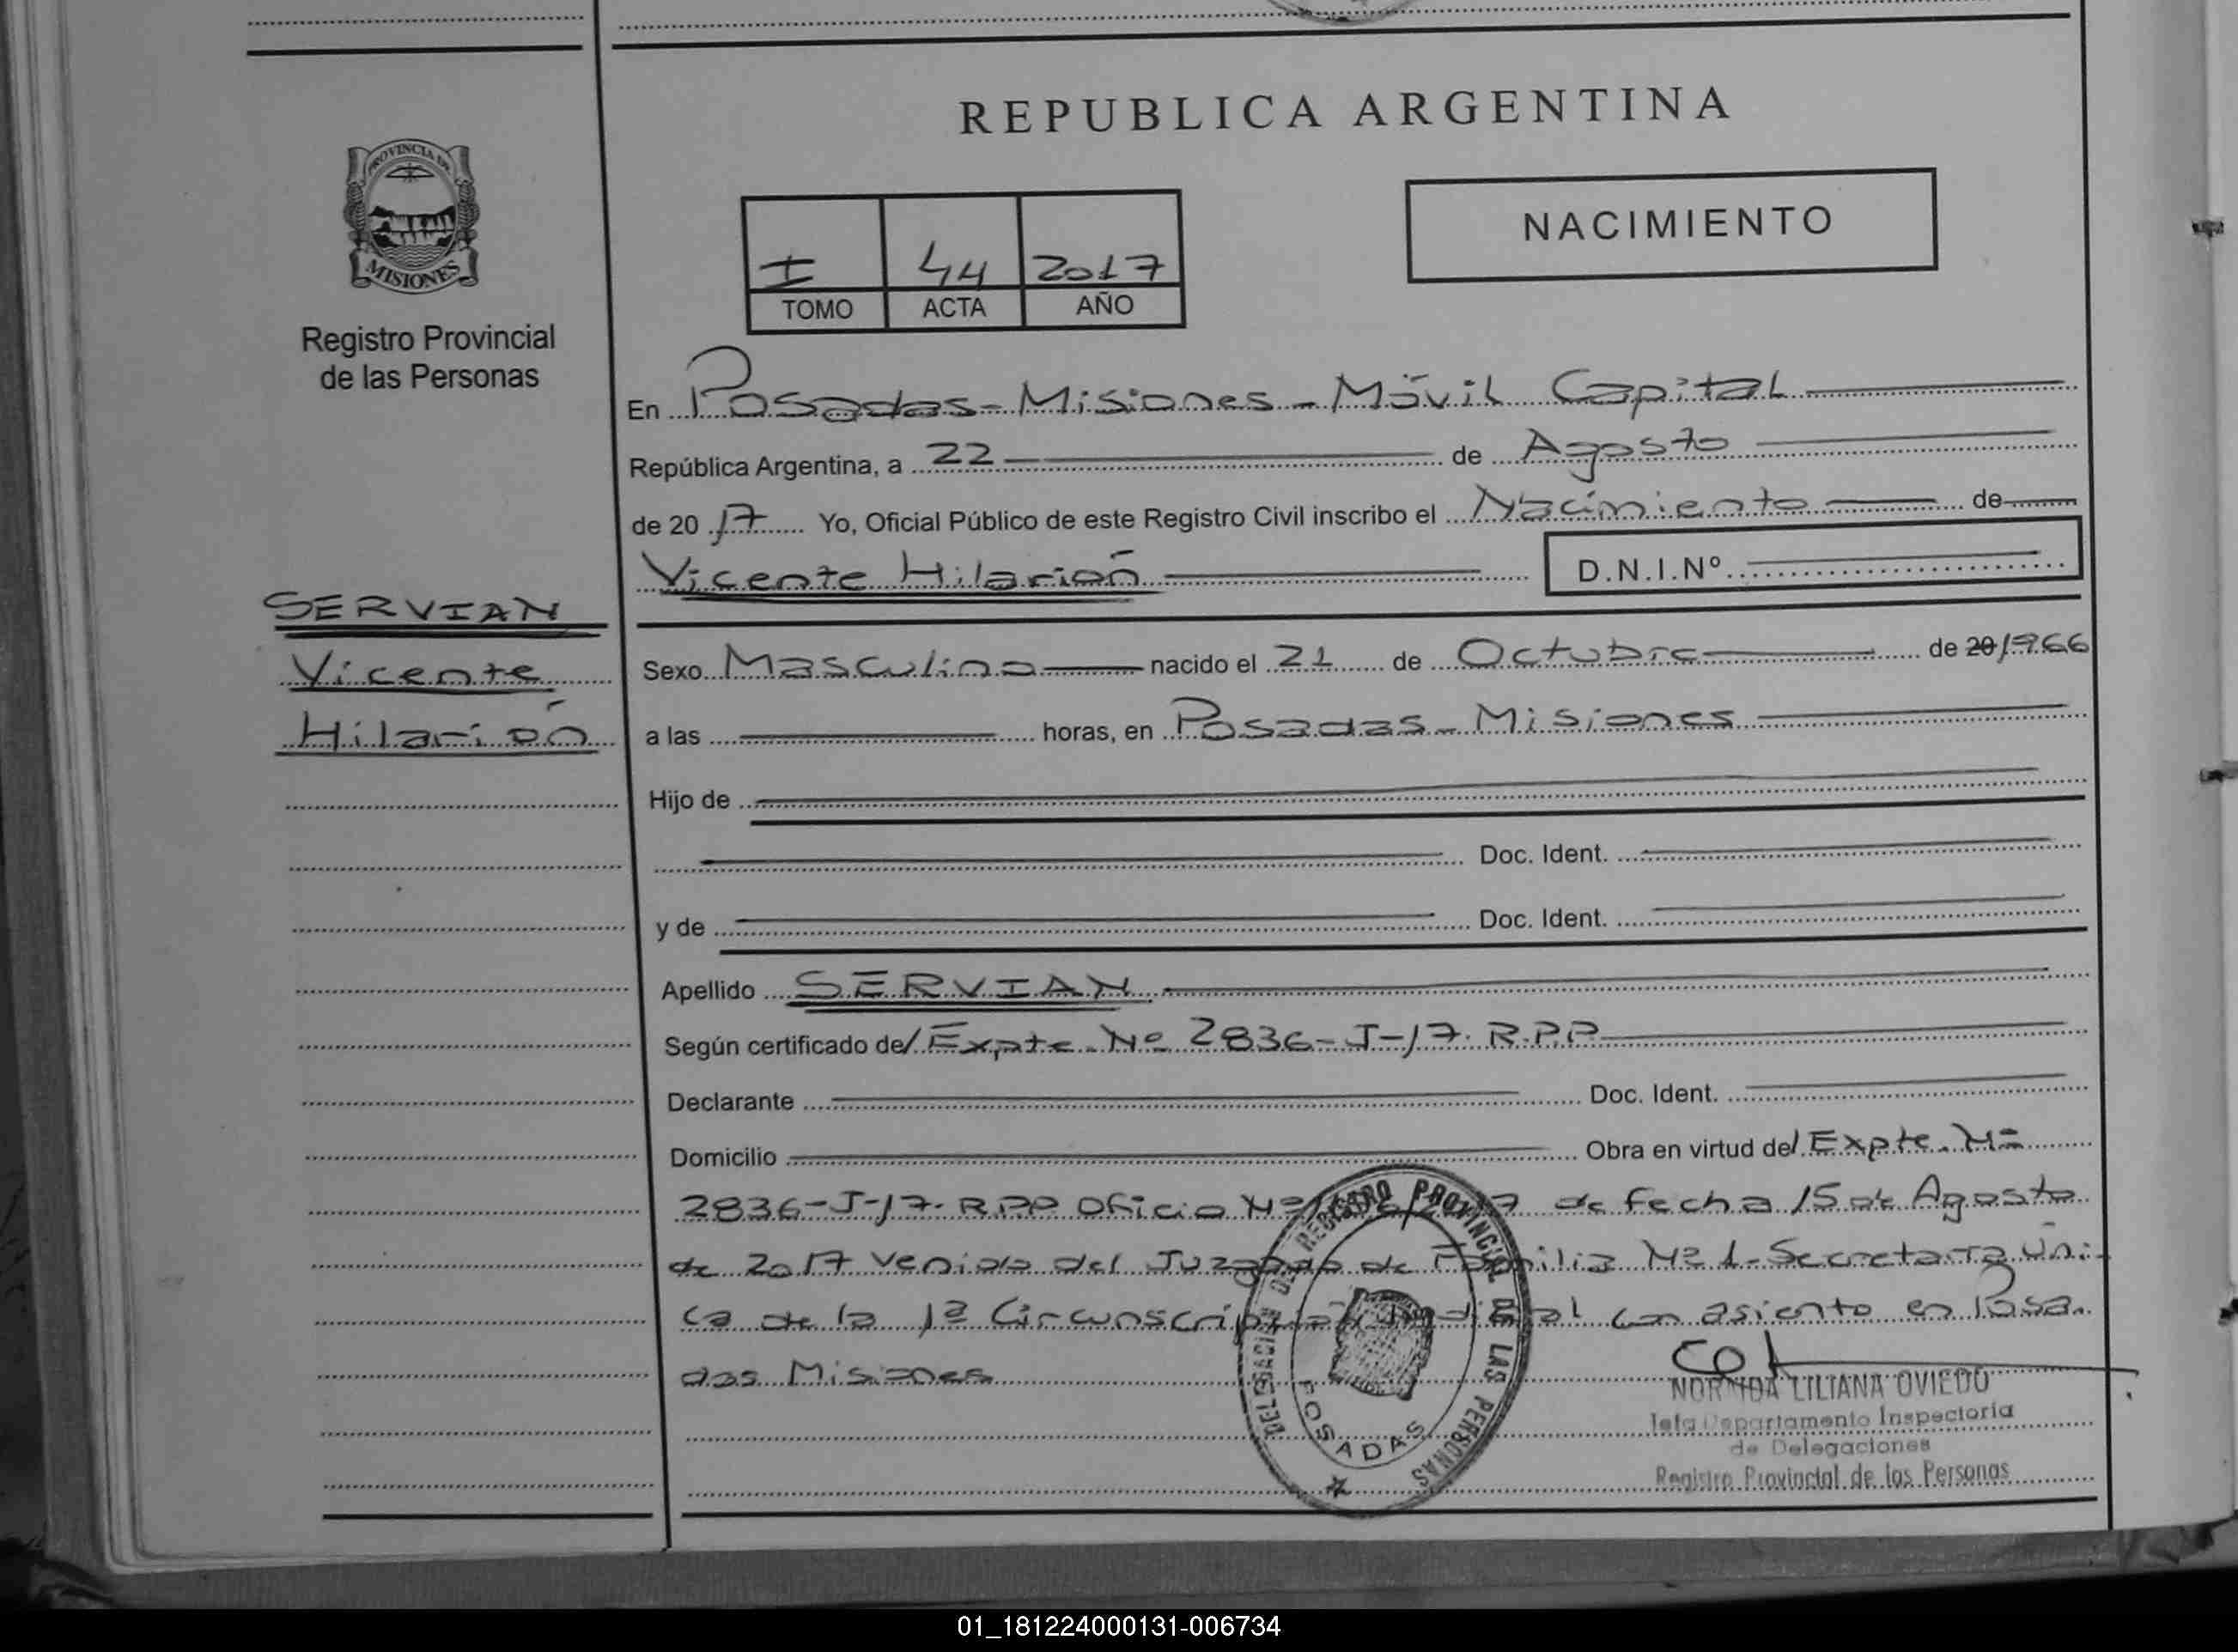 REPUBLICA ARGENTINA
PROVINCIA DE
MISIONES
Registro Provincial
de las Personas
NACIMIENTO
I 44 2017
TOMO ACTA AÑO
En Posadas - Misiones - Móvil Capital
República Argentina, a 22 de Agosto
de 20 17 Yo, Oficial Público de este Registro Civil inscribo el Nacimiento de
Vicente Hilarión D.N.I.Nº
SERVIAN
Vicente
Hilarión
Sexo Masculino nacido el 21 de Octubre de 20 1966
a las horas, en Posadas - Misiones
Hijo de
Doc. Ident.
y de Doc. Ident.
Apellido SERVIAN
Según certificado de/ Expte. Nº 2836-J-17. R.P.P
Declarante Doc. Ident.
Domicilio Obra en virtud del Expte. Nº
2836-J-17. R.P.P Oficio Nº de fecha 15 de Agosto
de 2017 venido del Juzgado de Familia Nº 1 - Secretaría Úni-
ca de la 1ª Circunscripción Judicial con asiento en Posa-
das Misiones
DELEGACIÓN DEL REGISTRO PROVINCIAL DE LAS PERSONAS
POSADAS
NORMIDA LILIANA OVIEDO
Jefa Departamento Inspectoria
de Delegaciones
Registro Provincial de las Personas
01_181224000131-006734